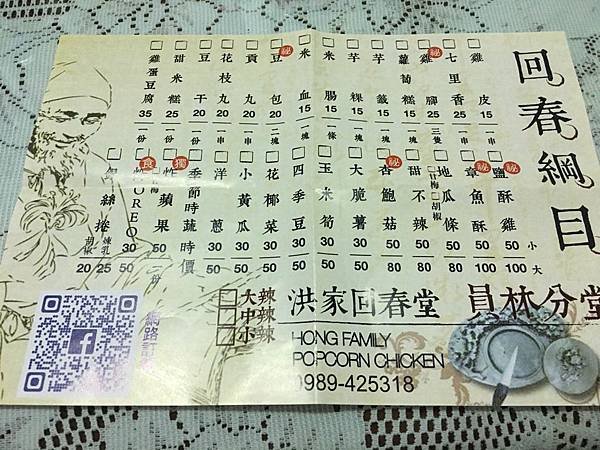 回春綱目
雞皮 15 一串
七里香 25 一串
祕 雞腳 15 三隻
蘿蔔糕 15 一塊
芋籤 15 一塊
芋粿 15 一塊
米腸 15 一條
米血 15 一塊
祕 豆包 20 二塊
貢丸 20 一串
花枝丸 20 一串
豆干 20
甜米糕 25 一份
雞蛋豆腐 35 一份
小 大
祕 鹽酥雞 50 100
章魚酥 50 100
地瓜條 梅 胡椒 50 80
甜不辣 50 80
祕 杏鮑菇 50 80
大脆薯 30 50
玉米筍 30 50
四季豆 30 50
花椰菜 30 50
小黃瓜 30 50
洋蔥 30 50
季節時蔬 時價
獨 炸蘋果 50 一份
食 OREO 30 50
絲捲 煉乳 25 胡椒 20
大辣
中辣
小辣
洪家回春堂 員林分堂
HONG FAMILY
POPCORN CHICKEN
0989-425318
網路訂